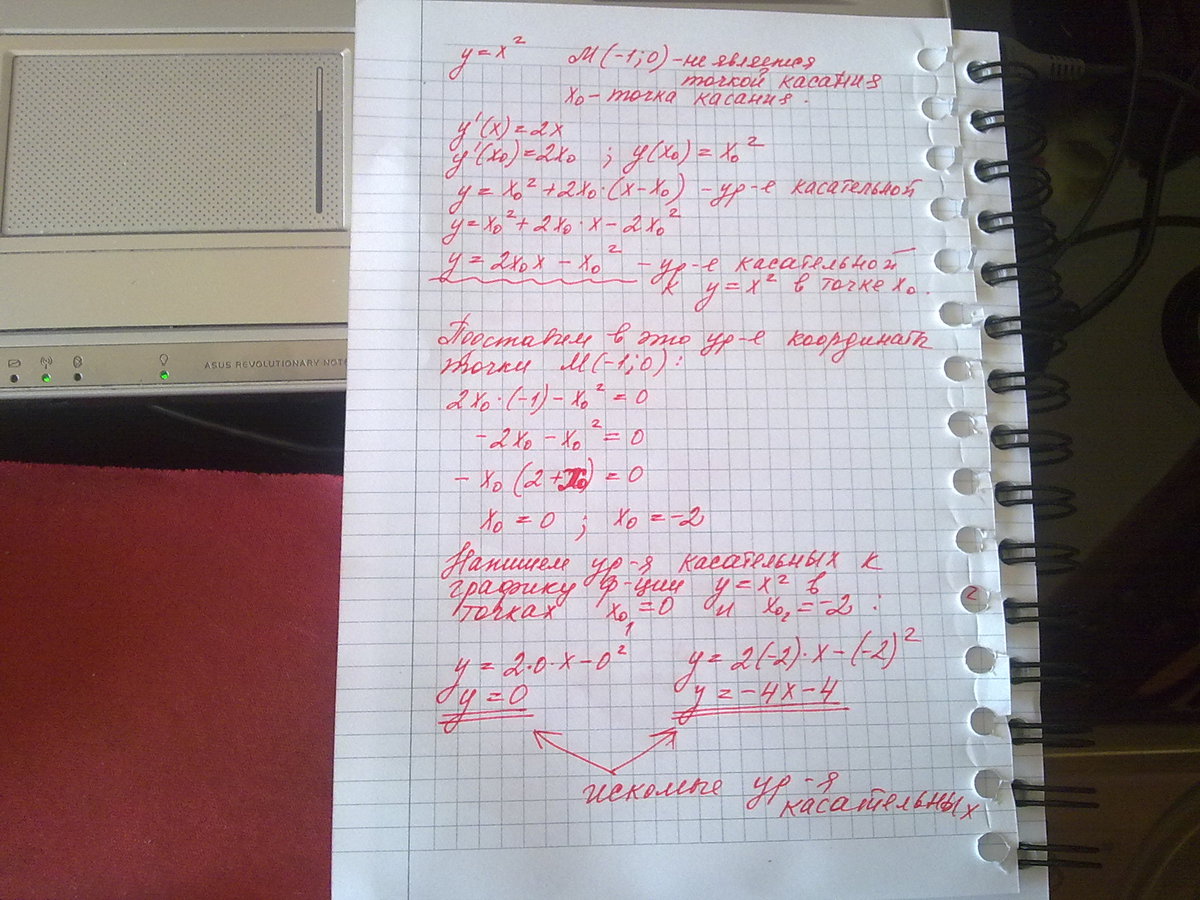 y = x²   M(-1;0) - не является
точкой касания
x₀ - точка касания.
y'(x) = 2x
y'(x₀) = 2x₀ ; y(x₀) = x₀²
y = x₀² + 2x₀·(x - x₀) - ур-е касательной
y = x₀² + 2x₀·x - 2x₀²
y = 2x₀x - x₀² - ур-е касательной
к y = x² в точке x₀.
Подставим в это ур-е координаты
точки M(-1;0):
2x₀·(-1) - x₀² = 0
-2x₀ - x₀² = 0
-x₀(2 + x₀) = 0
x₀ = 0 ; x₀ = -2
Напишем ур-я касательных к
графику ф-ции y = x² в
точках x₀₁ = 0 и x₀₂ = -2 :
y = 2·0·x - 0²   y = 2(-2)·x - (-2)²
y = 0   y = -4x - 4
искомые ур-я
касательных
ASUS REVOLUTIONARY NOTE
2